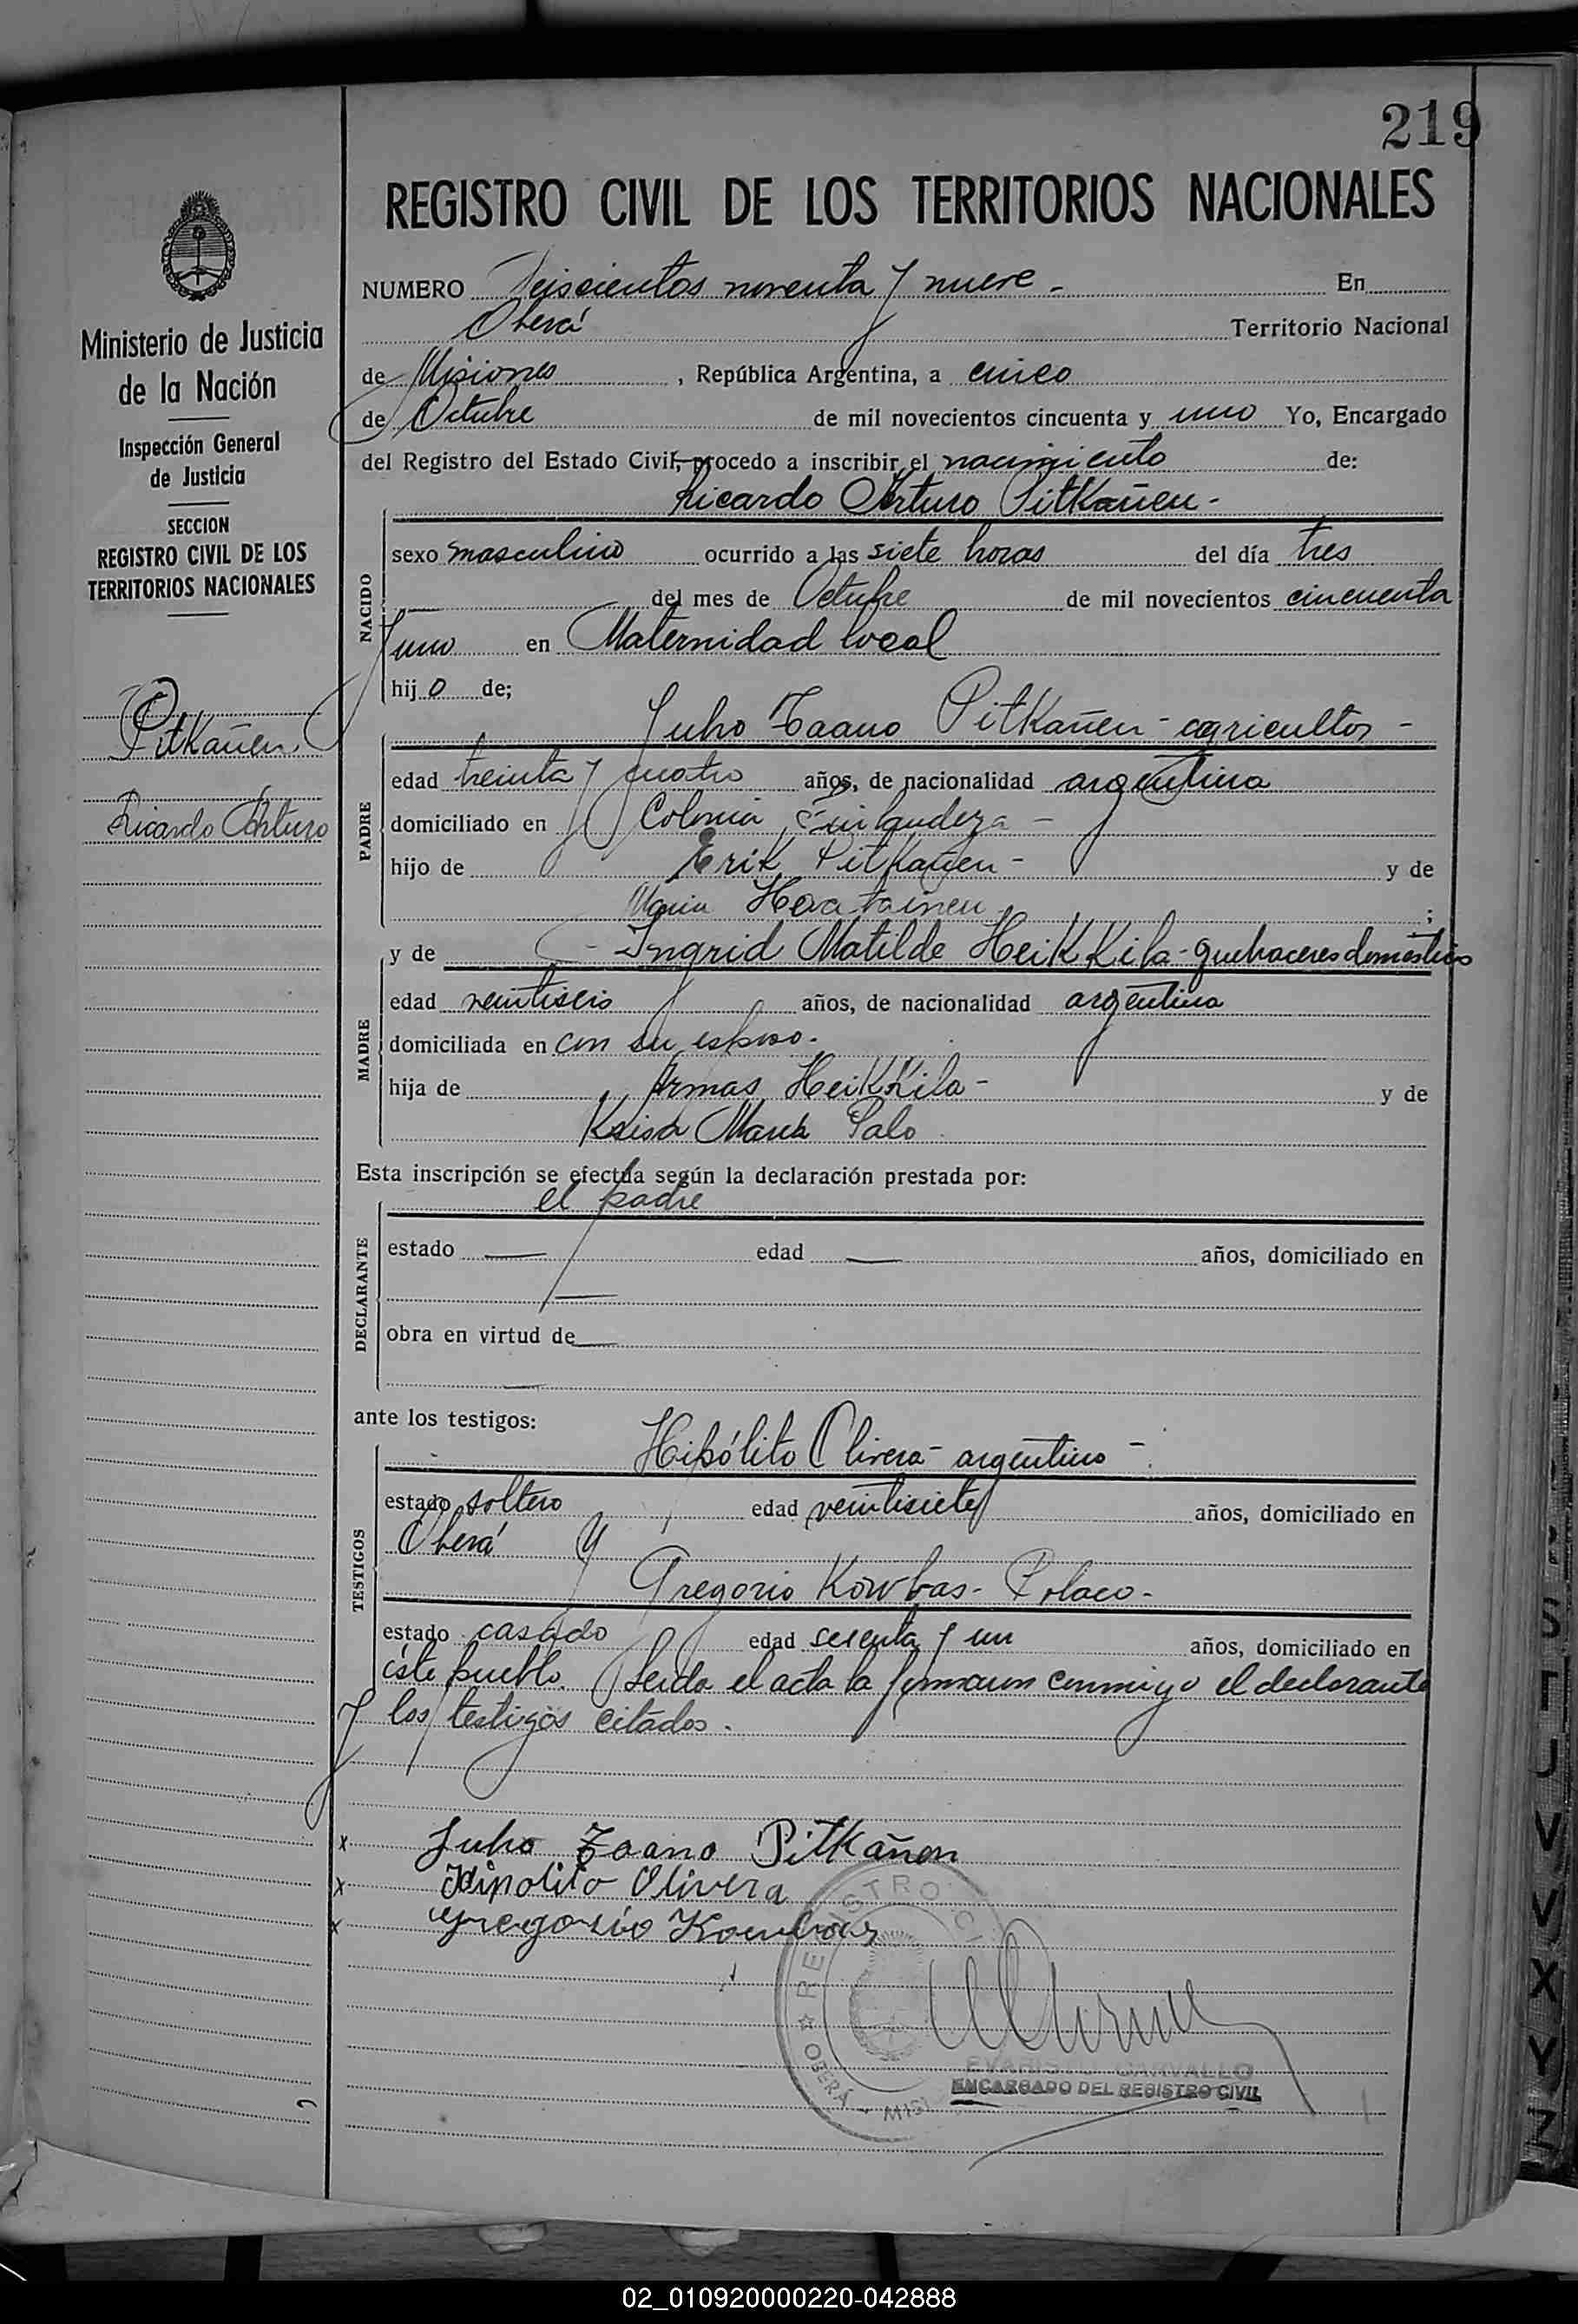 219
REGISTRO CIVIL DE LOS TERRITORIOS NACIONALES
Ministerio de Justicia
de la Nación
Inspección General
de Justicia
SECCION
REGISTRO CIVIL DE LOS
TERRITORIOS NACIONALES
Pitkañen
Ricardo Arturo
NUMERO Seiscientos noventa y nueve - En
Oberá Territorio Nacional
de Misiones, República Argentina, a cinco
de Octubre de mil novecientos cincuenta y uno Yo, Encargado
del Registro del Estado Civil, procedo a inscribir el nacimiento de:
Ricardo Arturo Pitkañen -
NACIDO
sexo masculino ocurrido a las siete horas del día tres
del mes de Octubre de mil novecientos cincuenta
y uno en Maternidad local
hijo de;
Juho Taano Pitkañen - agricultor -
PADRE
edad treinta y cuatro años, de nacionalidad argentina
domiciliado en Colonia Finlandeza -
hijo de Erik Pitkañen - y de
Maria ;
y de - Ingrid Matilde Heikkila - quehaceres domésticos
MADRE
edad veintiseis años, de nacionalidad argentina
domiciliada en con su esposo.
hija de Armas Heikkila - y de
Kaisa Maria Palo
Esta inscripción se efectúa según la declaración prestada por:
el padre
DECLARANTE
estado — edad — años, domiciliado en
—
obra en virtud de —
—
ante los testigos:
Hipólito Olivera - argentino -
TESTIGOS
estado soltero edad veintisiete años, domiciliado en
Oberá y
Gregorio Kowbas - Polaco -
estado casado edad sesenta y un años, domiciliado en
éste pueblo. Leida el acta la firmaron conmigo el declarante
y los testigos citados.
x Juho Taano Pitkañen
x Hipolito Olivera
x Gregorio Kowbas
REGISTRO CI
OBERÁ - MISI
CARVALLO
ENCARGADO DEL REGISTRO CIVIL
S
T
U
V
W
X
Y
Z
02_010920000220-042888